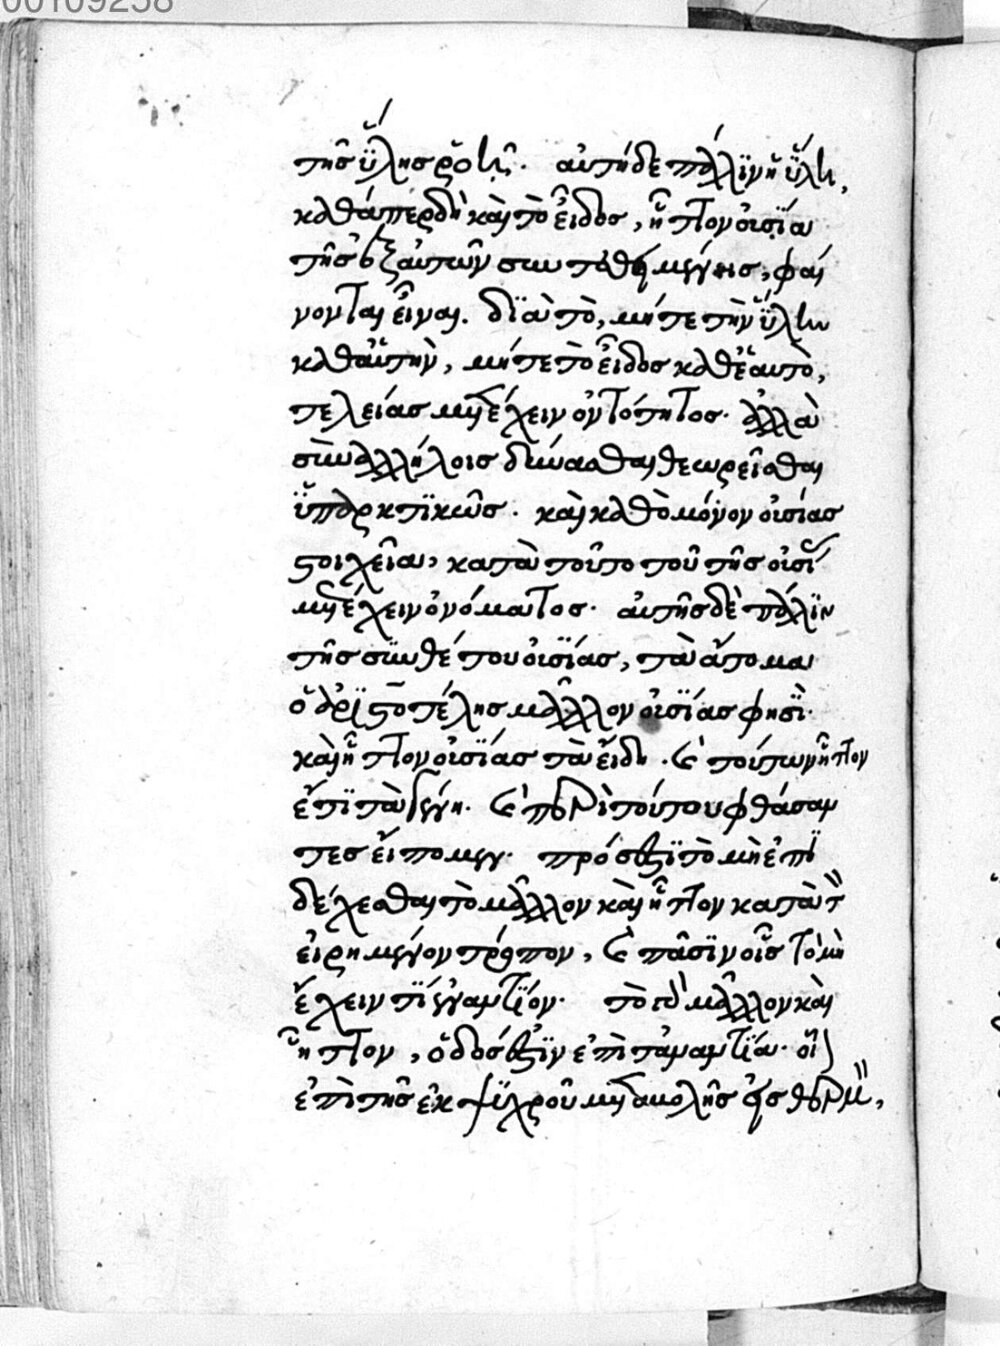 00109238
τῆς ὕλης αὐτὴ δὲ πάλιν ἡ ὕλη,
καθάπερ δὴ καὶ τὸ εἶδος, ἧττον οὐσία
τῆς ἐξ αὐτῶν συντεθειμένης, φαί
νονται εἶναι. διὰ τὸ, μήτε τὴν ὕλην
καθ' αὑτὴν, μήτε τὸ εἶδος καθ' ἑαυτὸ,
τελείας μετέχειν ὀντότητος. ἀλλὰ
σὺν ἀλλήλοις δύνασθαι θεωρεῖσθαι
ὑπαρκτικῶς. καὶ καθὸ μόνον οὐσίας
στοιχεῖα, κατὰ τοῦτο τοῦ τῆς οὐσί
μετέχειν ὀνόματος. αὐτῆς δὲ πάλιν
τῆς συνθέτου οὐσίας, τὰ ἄτομα
ὁ ἀριστοτέλης μᾶλλον οὐσίας φησὶ.
καὶ ἧττον οὐσίας τὰ εἴδη. καὶ τούτων ἧττον
ἔτι τὰ γένη. καὶ περὶ τούτου φθάσαν
τες εἴπομεν. πρόσεξι τὸ μὴ ἐπι
δέχεσθαι τὸ μᾶλλον καὶ ἧττον κατὰ τ
εἰρημένον τρόπον, καὶ πᾶσιν οἷς τὸ μὴ
ἔχειν τι ἐναντίον. τὸ γὰρ μᾶλλον καὶ
ἧττον, ὁδός ἐστιν ἐπὶ τἀναντία. οἷ
ἐπὶ τῆς ἐκ ψυχροῦ μεταβολῆς εἰς θερμ,